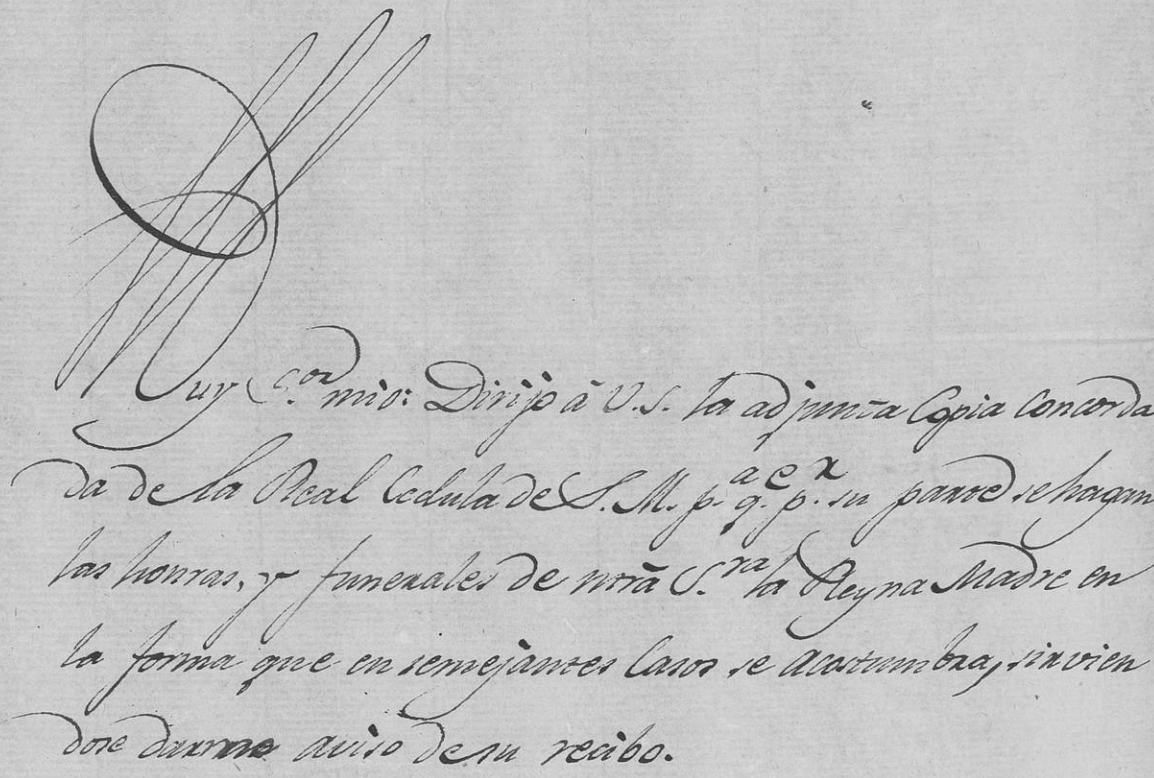 Muy S.or mio: Dirijo â V.S. la adjunta Copia Concorda
da de la Real Cedula de S. M. p.a q.e p.r su parte se hagan
las honras, y funerales de nrâ S.ra la Reyna Madre en
la forma que en semejantes Casos se acostumbra, sirvien
dose darme aviso de su recibo.